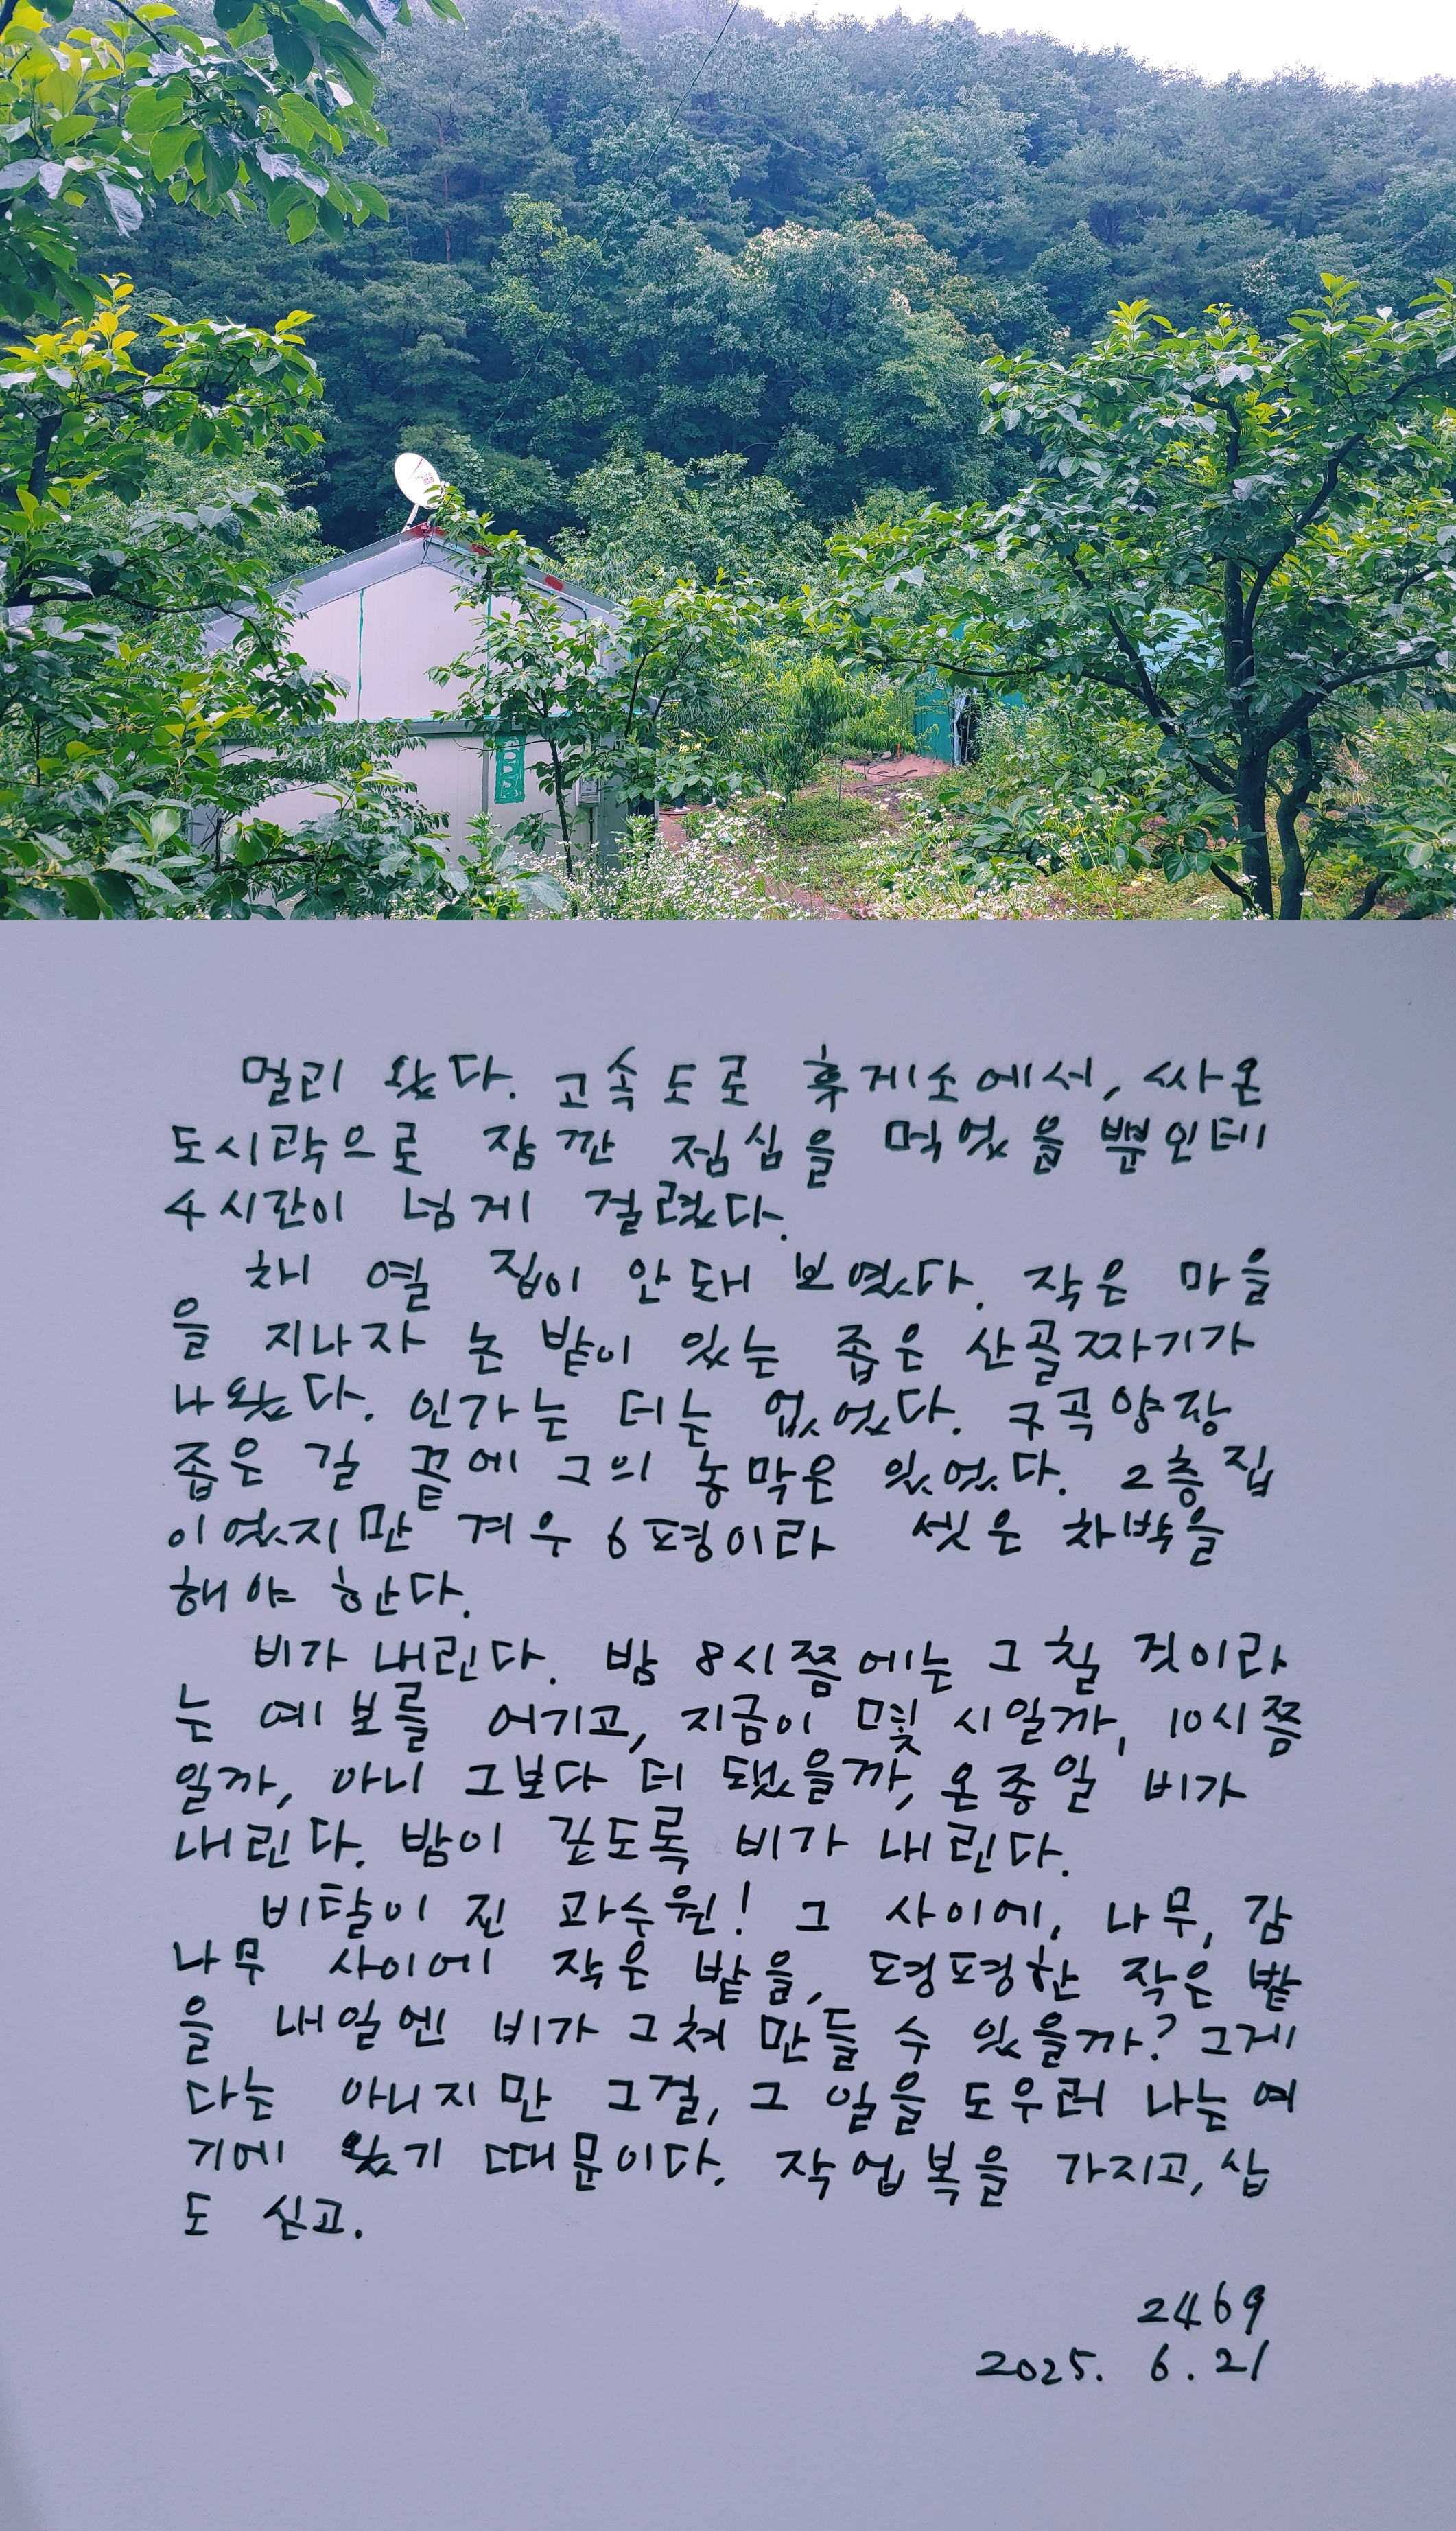 멀리 왔다. 고속도로 휴게소에서, 싸온
도시락으로 잠깐 점심을 먹었을 뿐인데
4시간이 넘게 걸렸다.
채 열 집이 안돼 보였다. 작은 마을
을 지나자 논밭이 있는 좁은 산골짜기가
나왔다. 인가는 더는 없었다. 구곡양장
좁은 길 끝에 그의 농막은 있었다. 2층집
이었지만 겨우 6평이라 셋은 차박을
해야 한다.
비가 내린다. 밤 8시쯤에는 그칠 것이라
는 예보를 어기고, 지금이 몇 시일까, 10시쯤
일까, 아니 그보다 더 됐을까, 온종일 비가
내린다. 밤이 깊도록 비가 내린다.
비탈이 진 과수원! 그 사이에, 나무, 감
나무 사이에 작은 밭을, 평평한 작은 밭
을 내일엔 비가 그쳐 만들 수 있을까? 그게
다는 아니지만 그걸, 그 일을 도우러 나는 여
기에 왔기 때문이다. 작업복을 가지고, 삽
도 싣고.
2469
2025. 6. 21